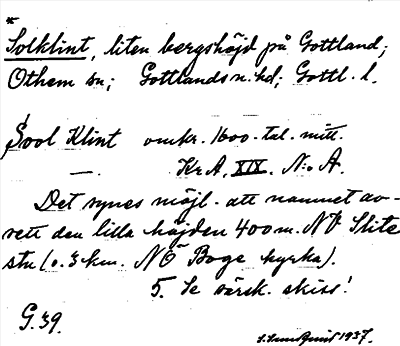 *
Solklint, liten bergshöjd på Gottland;
Othem sn; Gottlands n. hd; Gottl. l.
Sool Klint omkr. 1600-tal. mitt.
—. Kr A. XIX. N:o A.
Det synes möjl. att namnet av-
sett den lilla höjden 400 m. NV Slite
stn (o. 3 km. NÖ Boge kyrka).
5. Se särsk. skiss!
G. 39.
S. Sundquist 1937.